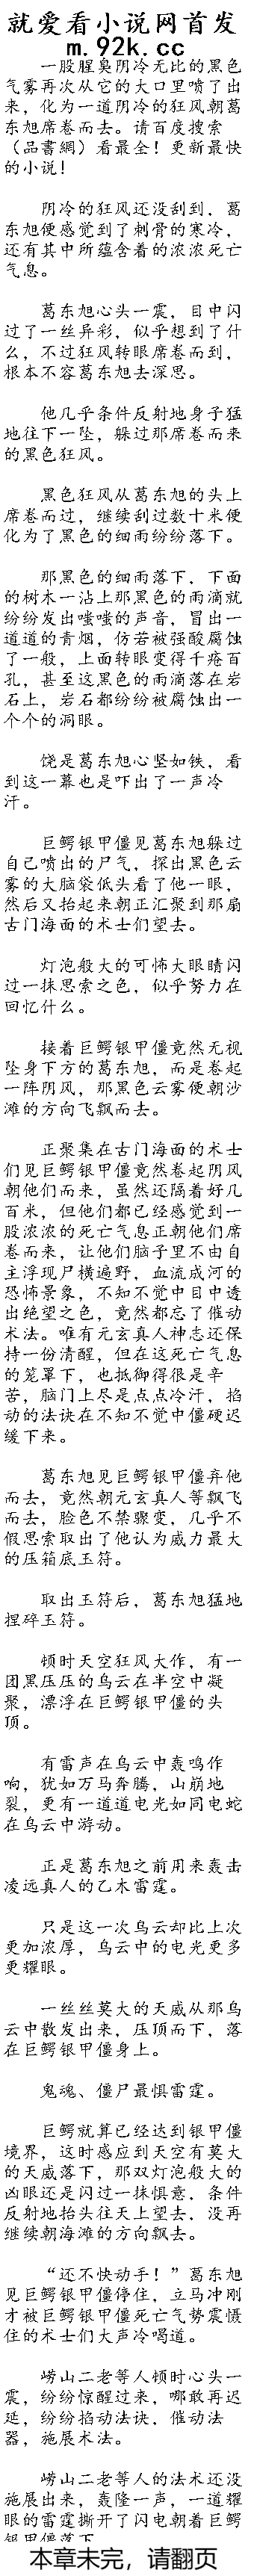 就爱看小说网首发
m.92k.cc
一股腥臭阴冷无比的黑色
气雾再次从它的大口里喷了出
来，化为一道阴冷的狂风朝葛
东旭席卷而去。请百度搜索
（品書網）看最全！更新最快
的小说！
阴冷的狂风还没刮到，葛
东旭便感觉到了刺骨的寒冷，
还有其中所蕴含着的浓浓死亡
气息。
葛东旭心头一震，目中闪
过了一丝异彩，似乎想到了什
么，不过狂风转眼席卷而到，
根本不容葛东旭去深思。
他几乎条件反射地身子猛
地往下一坠，躲过那席卷而来
的黑色狂风。
黑色狂风从葛东旭的头上
席卷而过，继续刮过数十米便
化为了黑色的细雨纷纷落下。
那黑色的细雨落下，下面
的树木一沾上那黑色的雨滴就
纷纷发出嗤嗤的声音，冒出一
道道的青烟，仿若被强酸腐蚀
了一般，上面转眼变得千疮百
孔，甚至这黑色的雨滴落在岩
石上，岩石都纷纷被腐蚀出一
个个的洞眼。
饶是葛东旭心坚如铁，看
到这一幕也是吓出了一声冷
汗。
巨鳄银甲僵见葛东旭躲过
自己喷出的尸气，探出黑色云
雾的大脑袋低头看了他一眼，
然后又抬起来朝正汇聚到那扇
古门海面的术士们望去。
灯泡般大的可怖大眼睛闪
过一抹思索之色，似乎努力在
回忆什么。
接着巨鳄银甲僵竟然无视
坠身下方的葛东旭，而是卷起
一阵阴风，那黑色云雾便朝沙
滩的方向飞飘而去。
正聚集在古门海面的术士
们见巨鳄银甲僵竟然卷起阴风
朝他们而来，虽然还隔着好几
百米，但他们都已经感觉到一
股浓浓的死亡气息正朝他们席
卷而来，让他们脑子里不由自
主浮现尸横遍野，血流成河的
恐怖景象，不知不觉中目中透
出绝望之色，竟然都忘了催动
术法。唯有元玄真人神志还保
持一份清醒，但在这死亡气息
的笼罩下，也抵御得很是辛
苦，脑门上尽是点点冷汗，掐
动的法诀在不知不觉中僵硬迟
缓下来。
葛东旭见巨鳄银甲僵弃他
而去，竟然朝元玄真人等飘飞
而去，脸色不禁骤变，几乎不
假思索取出了他认为威力最大
的压箱底玉符。
取出玉符后，葛东旭猛地
捏碎玉符。
顿时天空狂风大作，有一
团黑压压的乌云在半空中凝
聚，漂浮在巨鳄银甲僵的头
顶。
有雷声在乌云中轰鸣作
响，犹如万马奔腾，山崩地
裂，更有一道道电光如同电蛇
在乌云中游动。
正是葛东旭之前用来轰击
凌远真人的乙木雷霆。
只是这一次乌云却比上次
更加浓厚，乌云中的电光更多
更耀眼。
一丝丝莫大的天威从那乌
云中散发出来，压顶而下，落
在巨鳄银甲僵身上。
鬼魂、僵尸最惧雷霆。
巨鳄就算已经达到银甲僵
境界，这时感应到天空有莫大
的天威落下，那双灯泡般大的
凶眼还是闪过一抹惧意，条件
反射地抬头往天上望去，没再
继续朝海滩的方向飘去。
“还不快动手！”葛东旭
见巨鳄银甲僵停住，立马冲刚
才被巨鳄银甲僵死亡气势震慑
住的术士们大声冷喝道。
崂山二老等人顿时心头一
震，纷纷惊醒过来，哪敢再迟
延，纷纷掐动法诀，催动法
器，施展术法。
崂山二老等人的法术还没
施展出来，轰隆一声，一道耀
眼的雷霆撕开了闪电朝着巨鳄
银甲僵落下
本章未完，请翻页